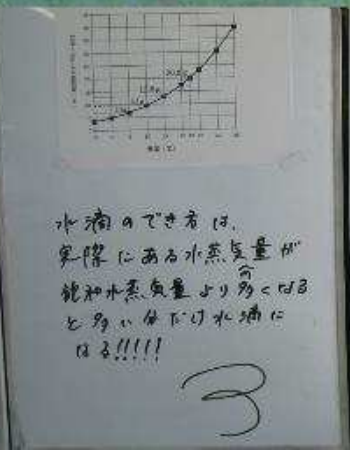 水滴のでき方は、
実際にある水蒸気量が
飽和水蒸気量より多くなる
と多い分だけ水滴に
なる!!!!!